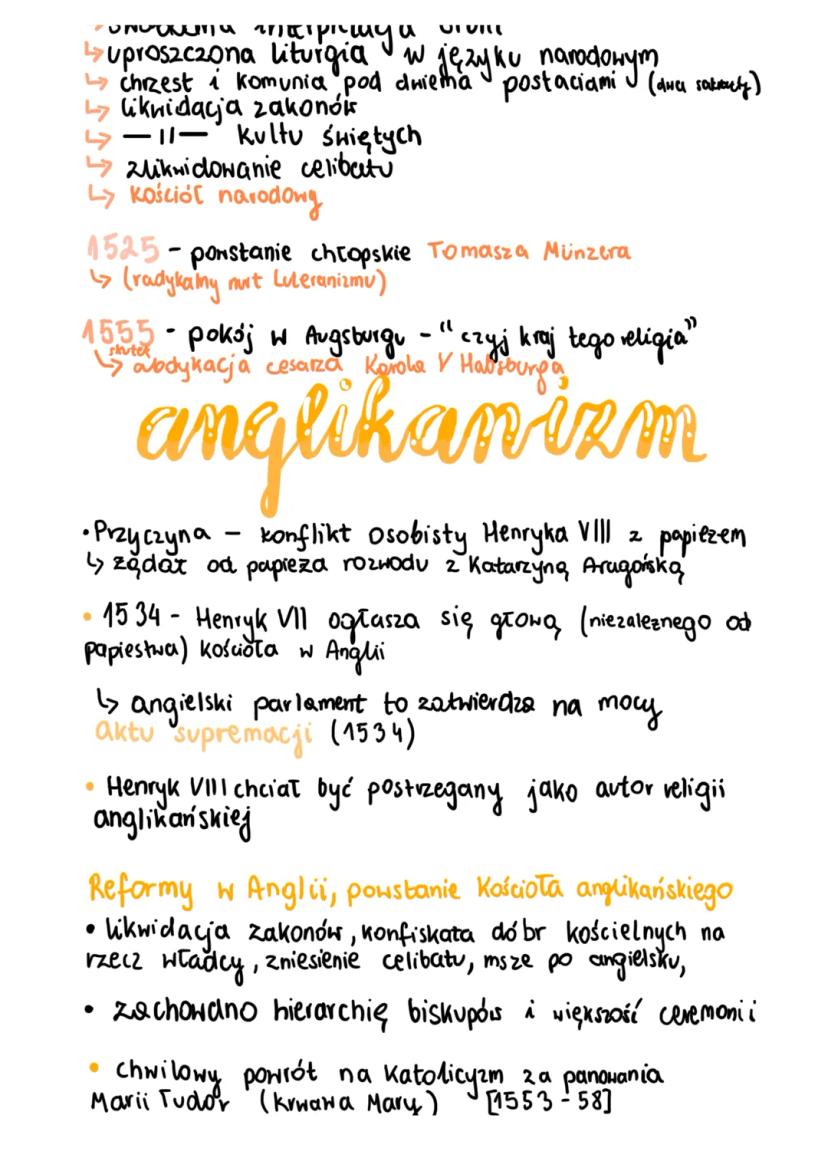 interpretacja
↳ uproszczona liturgia w języku narodowym
↳ chrzest i komunia pod dwiema postaciami (dwa sakramenty)
↳ likwidacja zakonów
↳ —||— kultu świętych
↳ zlikwidowanie celibatu
↳ kościół narodowy
1525 - powstanie chłopskie Tomasza Münzera
↳ (radykalny nurt luteranizmu)
1555 - pokój w Augsburgu - "czyj kraj tego religia"
skutek
↳ abdykacja cesarza Karola V Habsburga
anglikanizm
• Przyczyna – konflikt osobisty Henryka VIII z papieżem
↳ żądał od papieża rozwodu z Katarzyną Aragońską
• 1534 - Henryk VII ogłasza się głową (niezależnego od
papiestwa) kościoła w Anglii
↳ angielski parlament to zatwierdza na mocy
aktu supremacji (1534)
• Henryk VIII chciał być postrzegany jako autor religii
anglikańskiej
Reformy w Anglii, powstanie Kościoła anglikańskiego
• likwidacja zakonów, konfiskata dóbr kościelnych na
rzecz władcy, zniesienie celibatu, msze po angielsku,
• zachowano hierarchię biskupów i większość ceremonii
• chwilowy powrót na Katolicyzm za panowania
Marii Tudor (krwawa Mary) [1553-58]